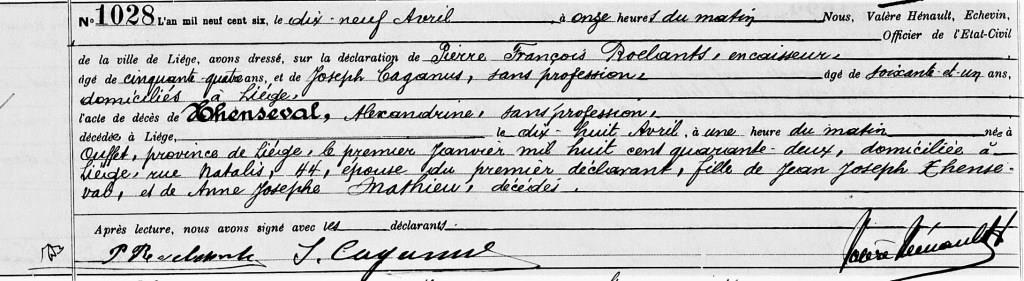 N° 1028 L'an mil neuf cent six, le dix-neuf Avril à onze heures du matin Nous, Valère Hénault, Echevin,
Officier de l'Etat-Civil
de la ville de Liége, avons dressé, sur la déclaration de Pierre François Roelants, encaisseur,
âgé de cinquante-quatre ans, et de Joseph Caganus, sans profession, âgé de soixante-et-un ans,
domiciliés à Liége,
l'acte de décès de Thenseval, Alexandrine, sans profession,
décédée à Liége, le dix-huit Avril, à une heure du matin née à
Ouffet, province de Liége, le premier Janvier mil huit cent quarante-deux, domiciliée à
Liége, rue Natalis, 44, épouse du premier déclarant, fille de Jean Joseph Thense-
val, et de Anne Josephe Mathieu, décédés.
Après lecture, nous avons signé avec les déclarants.
Valère Hénault